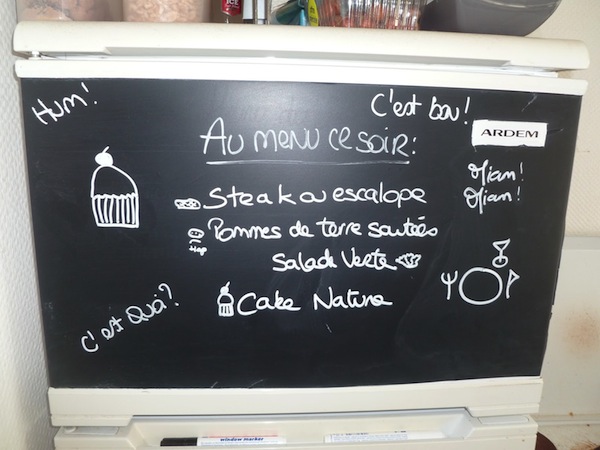 Hum!
C'est bon!
ARDEM
Au menu ce soir:
Miam!
Miam!
Steak ou escalope
Pommes de terre sautées
Hop
Salade Verte
Cake Nature
C'est Quoi?
window marker